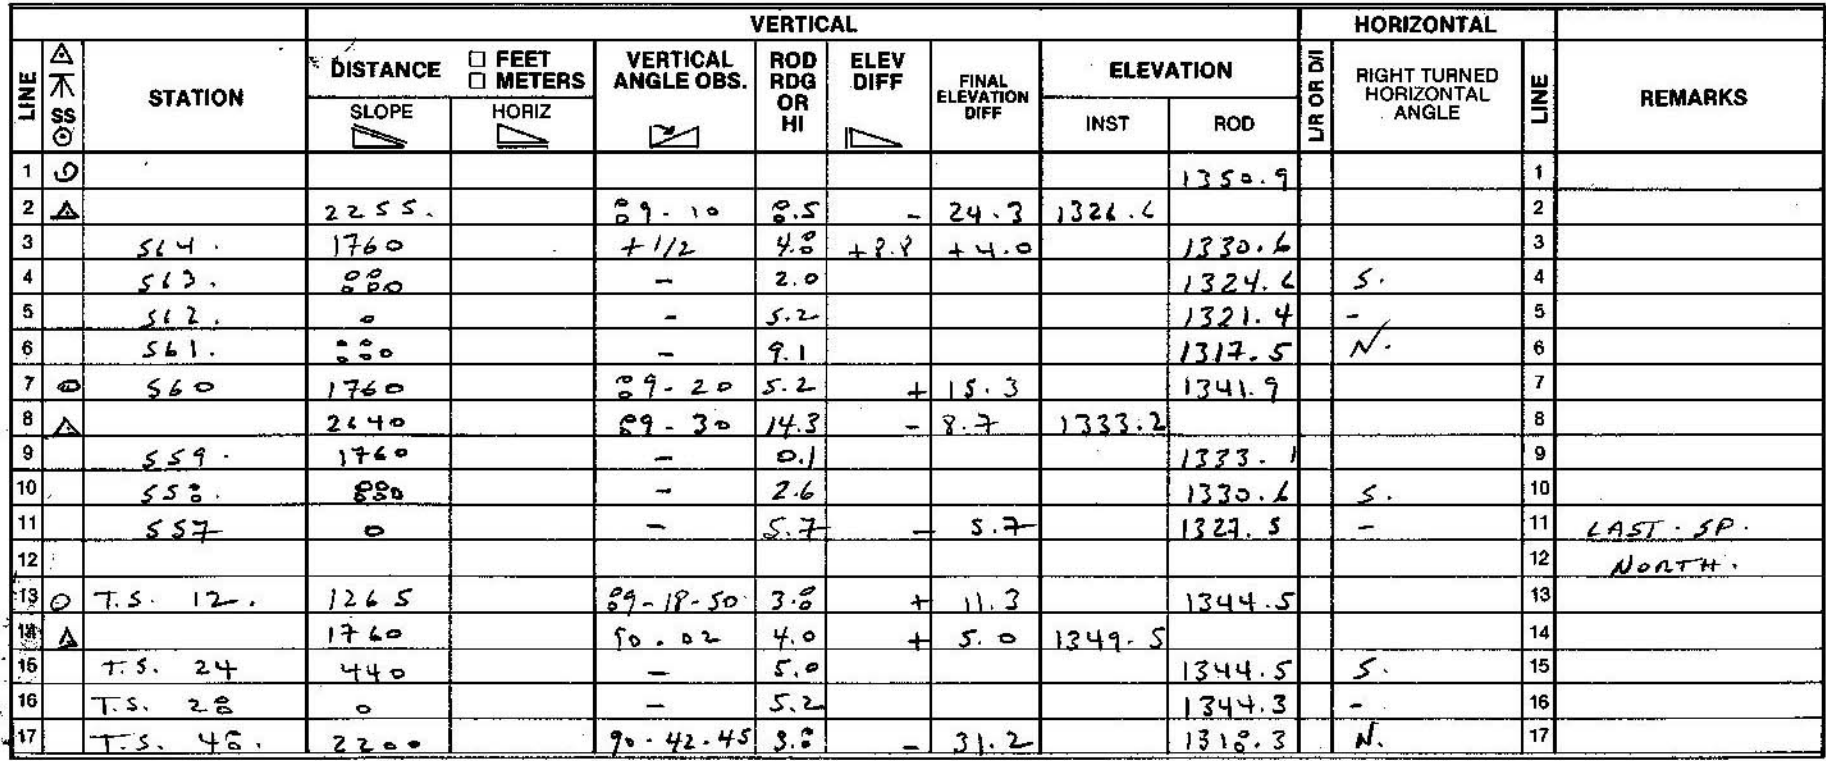 VERTICAL HORIZONTAL
LINE SS STATION DISTANCE □ FEET □ METERS VERTICAL ANGLE OBS. ROD RDG OR HI ELEV DIFF FINAL ELEVATION DIFF ELEVATION L/R OR D/I RIGHT TURNED HORIZONTAL ANGLE LINE REMARKS
SLOPE HORIZ INST ROD
1 1350.9 1
2 2255. 89-10 8.5 - 24.3 1326.6 2
3 564. 1760 +1/2 4.8 +8.8 +4.0 1330.6 3
4 563. 880 - 2.0 1324.6 S. 4
5 562. 0 - 5.2 1321.4 - 5
6 561. 880 - 9.1 1317.5 N. 6
7 560 1760 89-20 5.2 + 15.3 1341.9 7
8 2640 89-30 14.3 - 8.7 1333.2 8
9 559. 1760 - 0.1 1333.1 9
10 558. 880 - 2.6 1330.6 S. 10
11 557 0 - 5.7 - 5.7 1327.5 - 11 LAST. SP.
12 12 NORTH.
13 T.S. 12. 1265 89-18-50 3.8 + 11.3 1344.5 13
14 1760 90.02 4.0 + 5.0 1349.5 14
15 T.S. 24 440 - 5.0 1344.5 S. 15
16 T.S. 28 0 - 5.2 1344.3 - 16
17 T.S. 48. 2200 90-42-45 3.8 - 31.2 1318.3 N. 17